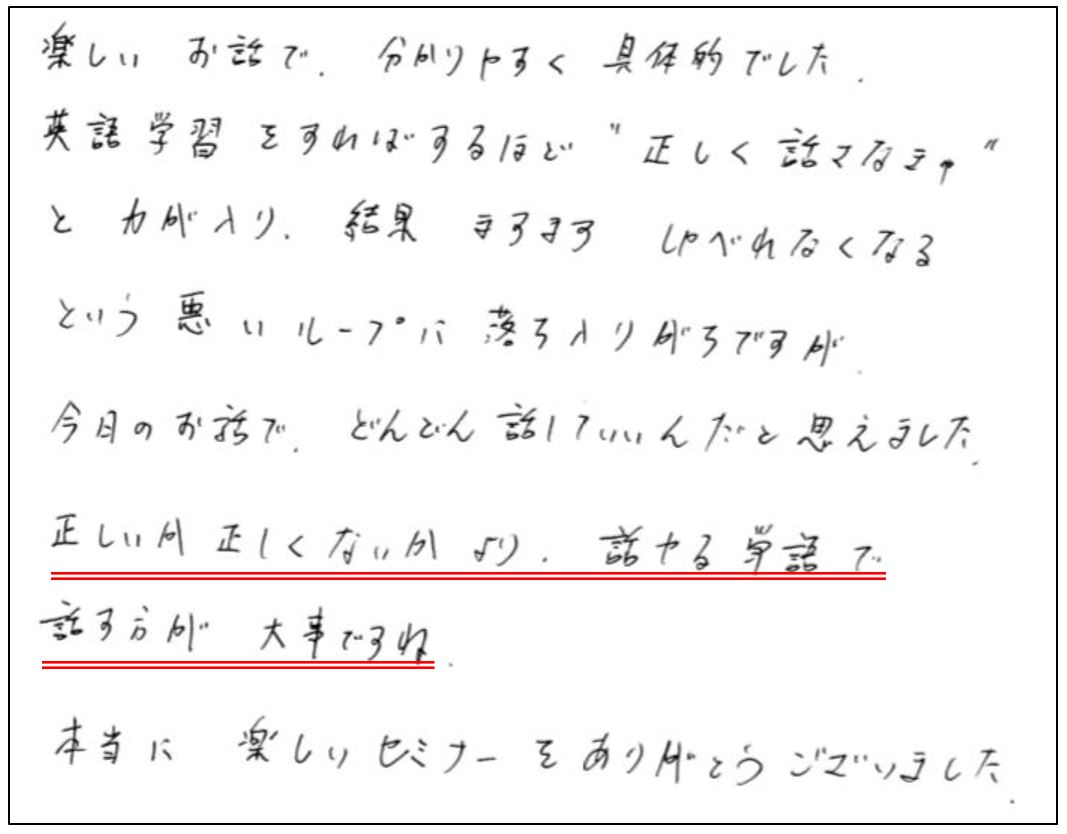 楽しい お話で、分かりやすく 具体的でした。
英語学習をすればするほど "正しく話さなきゃ"
と 力が入り、結果 ますます しゃべれなくなる
という 悪い ループに 落ち入りがちですが、
今日のお話で、どんどん話していいんだと思えました。
正しいか 正しくないか より、話せる単語で
話す方が 大事ですね。
本当に 楽しいセミナーをありがとうございました。